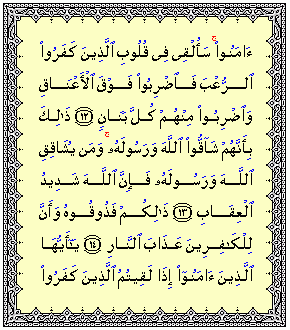 ءَامَنُوا۟ ۚ سَأُلْقِى فِى قُلُوبِ ٱلَّذِينَ كَفَرُوا۟
ٱلرُّعْبَ فَٱضْرِبُوا۟ فَوْقَ ٱلْأَعْنَاقِ
وَٱضْرِبُوا۟ مِنْهُمْ كُلَّ بَنَانٍ ﴿١٢﴾ ذَٰلِكَ
بِأَنَّهُمْ شَآقُّوا۟ ٱللَّهَ وَرَسُولَهُۥ ۚ وَمَن يُشَاقِقِ
ٱللَّهَ وَرَسُولَهُۥ فَإِنَّ ٱللَّهَ شَدِيدُ
ٱلْعِقَابِ ﴿١٣﴾ ذَٰلِكُمْ فَذُوقُوهُ وَأَنَّ
لِلْكَٰفِرِينَ عَذَابَ ٱلنَّارِ ﴿١٤﴾ يَٰٓأَيُّهَا
ٱلَّذِينَ ءَامَنُوٓا۟ إِذَا لَقِيتُمُ ٱلَّذِينَ كَفَرُوا۟